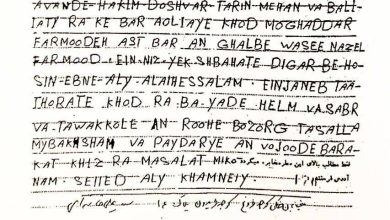 AVANDE-HAKIM DOSHVAR-TARIN MEHAN VA BALI-
IATY RA KE BAR AOLIAYE KHOD MOGHADDAR
FARMOODEH AST BAR AN GHALBE WASEE NAZEL
FARMOOD. EIN NIZ YEK SHBAHATE DIGAR BE HO-
SIN-EBNE-ALY-ALAIHESSALAM. EINJANEB TAA-
THORATE KHOD RA BA YADE HELM VA SABR
VA TAWAKKOLE AN ROOHE BOZORG TASALLA
MYBAKHSHAM VA PAYDARYE AN VOJOODE BARA-
KAT KHIZ RA MASALAT MIKO
NAM SEIIED ALY KHAMNEIY.